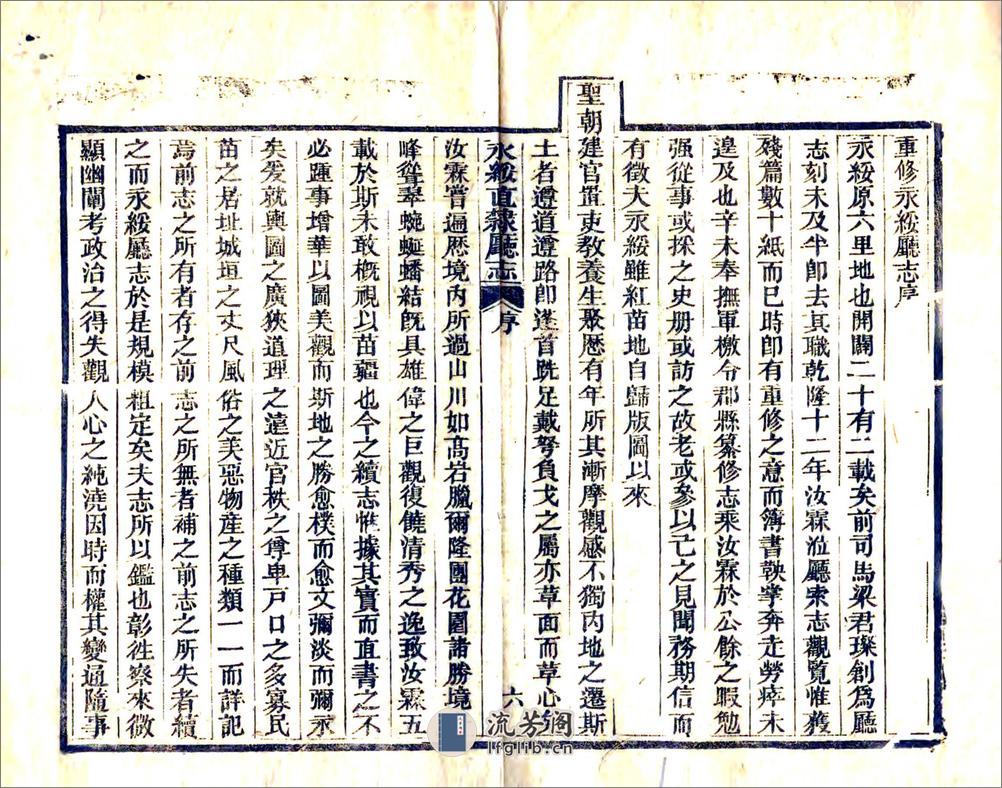 重修永綏廳志序
永綏原六里地也開闢二十有二載矣前司馬梁君璨創爲廳
志刻未及半卽去其職乾隆十二年汝霖涖廳索志觀覽惟獲
殘篇數十紙而已時卽有重修之意而簿書鞅掌奔走勞瘁未
遑及也辛未奉撫軍檄令郡縣纂修志乘汝霖於公餘之暇勉
强從事或採之史册或訪之故老或參以已之見聞務期信而
有徵夫永綏雖紅苗地自歸版圖以來
聖朝建官置吏教養生聚歷有年所其漸摩觀感不獨內地之遷斯
土者遵道遵路卽蓬首跣足戴弩負戈之屬亦革面而革心
永綏直隸廳志 序 六
汝霖嘗遍歷境內所過山川如高岩臘爾隆團花園諸勝境
峰聳翠蜿蜒蟠結旣具雄偉之巨觀復饒清秀之逸致汝霖五
載於斯未敢槪視以苗疆也今之續志惟據其實而直書之不
必踵事增華以圖美觀而斯地之勝愈樸而愈文彌淡而彌永
矣爰就輿圖之廣狹道理之遠近官秩之尊卑戸口之多寡民
苗之居址城垣之丈尺風俗之美惡物産之種類一一而詳記
焉前志之所有者存之前志之所無者補之前志之所失者續
之而永綏廳志於是規模粗定矣夫志所以鑑也彰徃察來微
顯幽闡考政治之得失觀人心之純澆因時而權其變通隨事
流芳閣
lfglib.cn